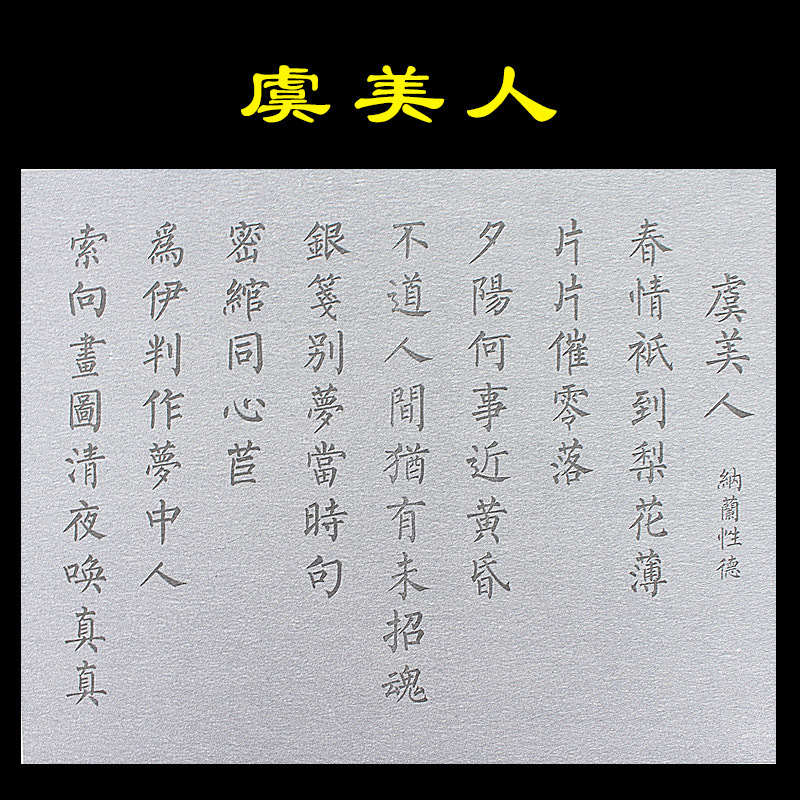 虞美人
虞美人
納蘭性德
春情衹到梨花薄
片片催零落
夕陽何事近黄昏
不道人間猶有未招魂
銀箋别夢當時句
密綰同心苣
為伊判作夢中人
索向畫圖清夜喚真真